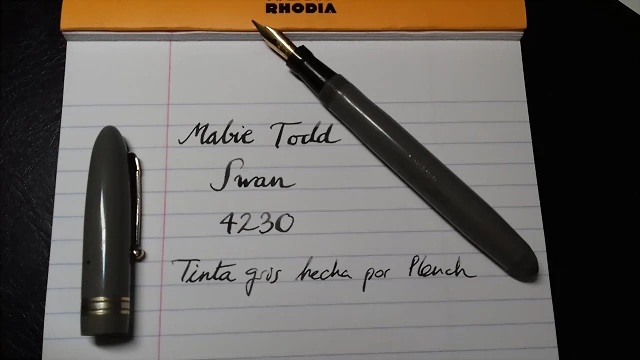 RHODIA
Mabie Todd
Swan
4230
Tinta gris hecha por Plench